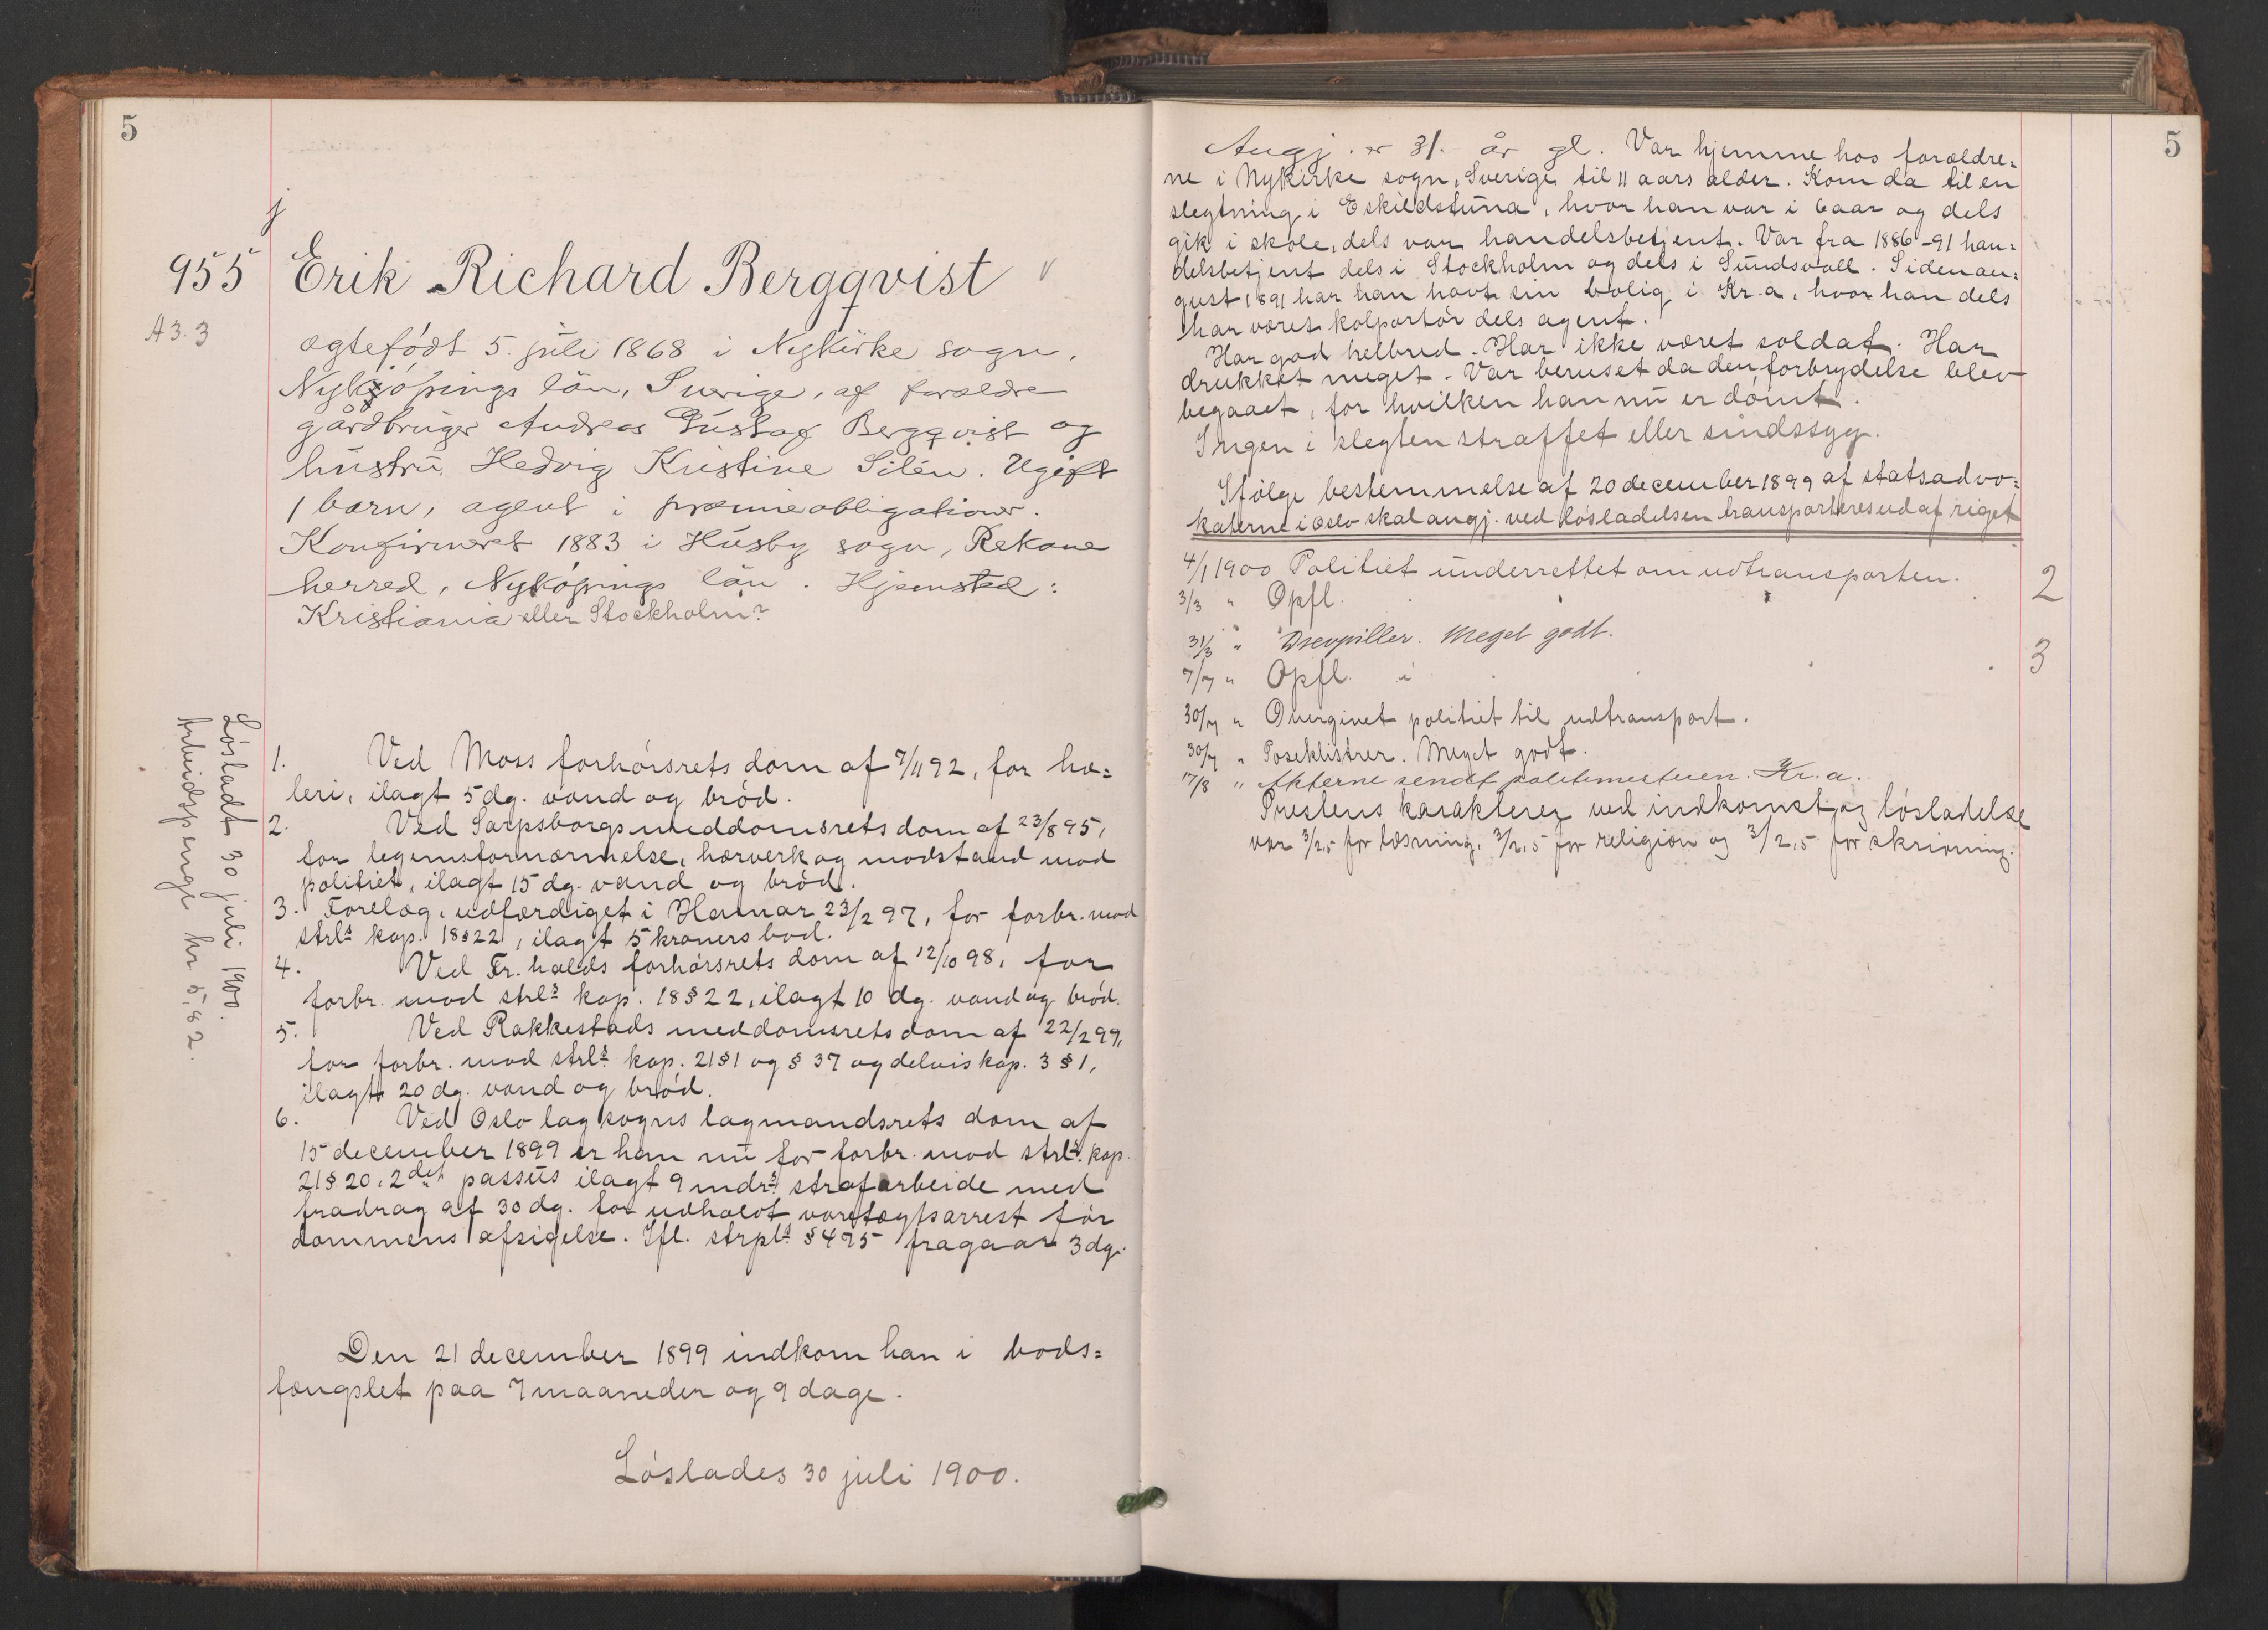 5
j
955 Erik Richard Bergqvist v
A 3. 3
ægtefödt 5. juli 1868 i Nykirke sogn,
Nykjöpings län, Sverige, af forældre
gårdbruger Andreas Gustaf Bergqvist og
hustru Hedvig Kristine Silén. Ugift
1 barn, agent i præmieobligationer.
Konfirmeret 1883 i Husby sogn, Rekane
herred, Nyköpings län. Hjemsted:
Kristiania eller Stockholm?
Løsladt 30 juli 1900.
Arbeidspenge kr 5,82.
1. Ved Moss forhørsrets dom af 7/11 92, for hæ=
leri, ilagt 5 dg. vand og brød.
2. Ved Sarpsborgs meddomsrets dom af 23/8 95,
for legemsfornærmelse, hærverk og modstand mod
politiet, ilagt 15 dg. vand og brød.
3. Forelæg, udfærdiget i Hamar 23/2 97, for forbr. mod
strls kap. 18 § 22, ilagt 5 kroners bod.
4. Ved Fr.halds forhørsrets dom af 12/10 98, for
forbr. mod strls kap. 18 § 22, ilagt 10 dg. vand og brød.
5. Ved Rakkestads meddomsrets dom af 22/2 99,
for forbr. mod strls kap. 21 § 1 og § 37 og delvis kap. 3 § 1,
ilagt 20 dg. vand og brød.
6. Ved Oslo lagsogns lagmandsrets dom af
15 december 1899 er han nu for forbr. mod strls kap.
21 § 20, 2det passus ilagt 9 mdrs strafarbeide med
fradrag af 30 dg. for udholdt varetægtsarrest før
dommens afsigelse. Ifl. strpls § 475 fragaar 3 dg.
Den 21 december 1899 indkom han i bods=
fængslet paa 7 maaneder og 9 dage.
Løslades 30 juli 1900.
5
Angj. er 31 år gl. Var hjemme hos forældre=
ne i Nykirke sogn, Sverige til 11 aars alder. Kom da til en
slegtning i Eskildstuna, hvor han var i 6 aar og dels
gik i skole, dels var handelsbetjent. Var fra 1886-91 han=
delsbetjent dels i Stockholm og dels i Sundsvall. Siden au=
gust 1891 har han havt sin bolig i Kr.a, hvor han dels
har været kolportør dels agent.
Har god helbred. Har ikke været soldat. Har
drukket meget. Var beruset da den forbrydelse blev
begaaet, for hvilken han nu er dømt.
Ingen i slegten straffet eller sindssyg.
Ifølge bestemmelse af 20 december 1899 af statsadvo=
katerne i Oslo skal angj. ved løsladelsen transporteres ud af riget
4/1 1900 Politiet underrettet om udtransporten.
3/3 " Opfl. 2
31/3 " Drevpiller. Meget godt.
7/7 " Opfl. i 3
30/7 " Overgivet politiet til udtransport.
30/7 " Poseklistrer. Meget godt.
17/8 " Akterne sendt politimesteren. Kr.a.
Prestens karakterer ved indkomst og løsladelse
var 3/2,5 for læsning, 3/2,5 for religion og 3/2,5 for skrivning.